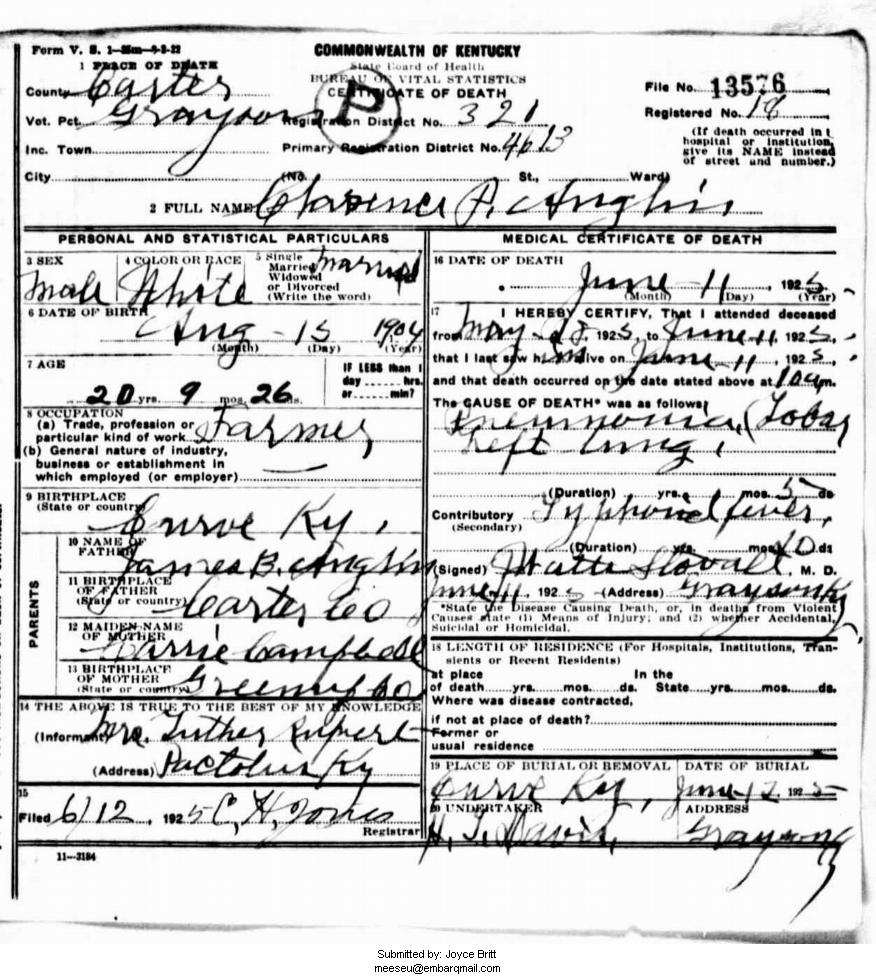 Form V. S. 1-35m-9-2-22
COMMONWEALTH OF KENTUCKY
State Board of Health
BUREAU OF VITAL STATISTICS
CERTIFICATE OF DEATH
1 PLACE OF DEATH
County Carter
Vot. Pct. Grayson
Inc. Town
City
P
Registration District No. 321
Primary Registration District No. 4613
(No. St., Ward)
File No. 13576
Registered No. 18
(If death occurred in
hospital or institution,
give its NAME instead
of street and number.)
2 FULL NAME Clarence P. Anglin
PERSONAL AND STATISTICAL PARTICULARS
3 SEX
Male
4 COLOR OR RACE
White
5 Single
Married
Widowed
or Divorced
(Write the word)
Married
6 DATE OF BIRTH
Aug - 15 1904
(Month) (Day) (Year)
7 AGE
20 yrs. 9 mos. 26 ds.
IF LESS than 1
day ...... hrs.
or ...... min?
8 OCCUPATION
(a) Trade, profession or
particular kind of work Farmer
(b) General nature of industry,
business or establishment in
which employed (or employer)
9 BIRTHPLACE
(State or country)
Curve Ky.
PARENTS
10 NAME OF
FATHER
James B. Anglin
11 BIRTHPLACE
OF FATHER
(State or country)
Carter Co
12 MAIDEN NAME
OF MOTHER
Carrie Campbell
13 BIRTHPLACE
OF MOTHER
(State or country)
Greenup Co
14 THE ABOVE IS TRUE TO THE BEST OF MY KNOWLEDGE
(Informant) Mrs. Luther Rupert
(Address) Pactolus Ky
15
Filed 6/12, 1925 C. H. Jones
Registrar
11-3184
MEDICAL CERTIFICATE OF DEATH
16 DATE OF DEATH
June - 11, 1925
(Month) (Day) (Year)
17 I HEREBY CERTIFY, That I attended deceased
from May 1925, to June 11, 1925,
that I last saw him alive on June 11, 1925,
and that death occurred on the date stated above at 10am.
The CAUSE OF DEATH* was as follows:
Pneumonia, (Lobar
Left lung,
(Duration) yrs. mos. 5 ds
Contributory Typhoid fever,
(Secondary)
(Duration) yrs. mos. 10 ds
(Signed) Watts Stovall, M. D.
June 11, 1925 (Address) Grayson Ky
*State the Disease Causing Death, or, in deaths from Violent
Causes state (1) Means of Injury; and (2) whether Accidental,
Suicidal or Homicidal.
18 LENGTH OF RESIDENCE (For Hospitals, Institutions, Tran-
sients or Recent Residents)
At place In the
of death......yrs......mos......ds. State......yrs......mos......ds.
Where was disease contracted,
if not at place of death?
Former or
usual residence
19 PLACE OF BURIAL OR REMOVAL
Curve Ky,
DATE OF BURIAL
June 12 1925
20 UNDERTAKER
H. J. Davis,
ADDRESS
Grayson Ky
Submitted by: Joyce Britt
meeseu@embarqmail.com